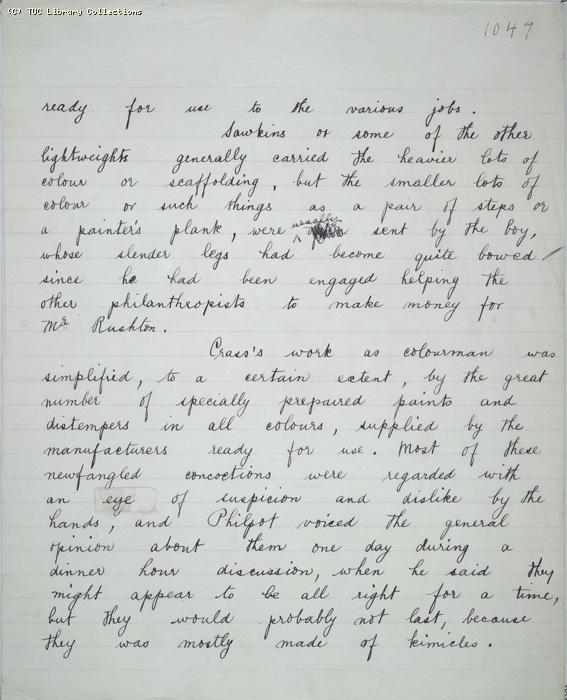 (C) TUC Library Collections
1047
ready for use to the various jobs.
Sawkins or some of the other
lightweights generally carried the heavier lots of
colour or scaffolding, but the smaller lots of
colour or such things as a pair of steps or
usually
a painter's plank, were sent by the boy,
whose slender legs had become quite bowed
since he had been engaged helping the
other philanthropists to make money for
Mr Rushton.
Crass's work as colourman was
simplified, to a certain extent, by the great
number of specially prepaired paints and
distempers in all colours, supplied by the
manufacturers ready for use. Most of these
newfangled concoctions were regarded with
an eye of suspicion and dislike by the
hands, and Philpot voiced the general
opinion about them one day during a
dinner hour discussion, when he said they
might appear to be all right for a time,
but they would probably not last, because
they was mostly made of kimicles.